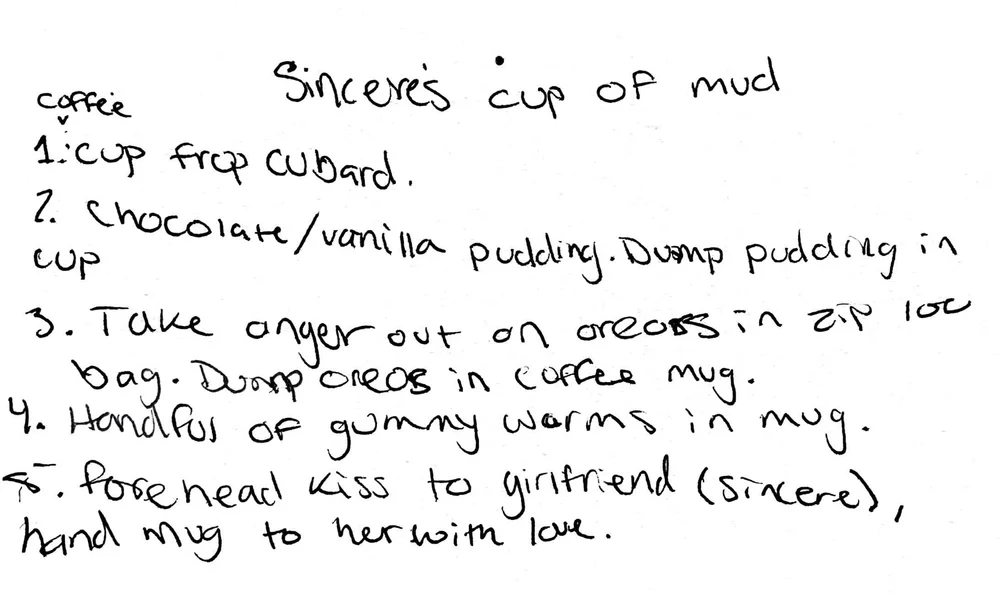 Sincere's cup of mud
coffee
1. cup frop cubard.
2. Chocolate/vanilla pudding. Dump pudding in
cup
3. Take anger out on oreos in zip loc
bag. Dump oreos in coffee mug.
4. Handful of gummy worms in mug.
5. forehead kiss to girlfriend (sincere),
hand mug to her with love.